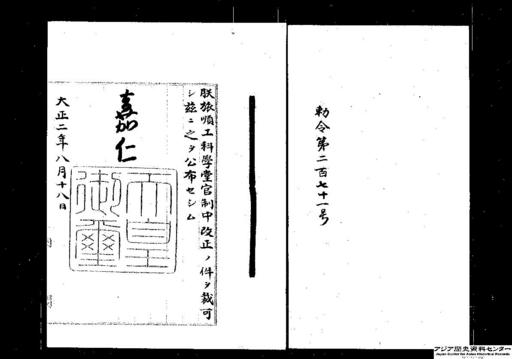 勅令第二百七十一号
朕旅順工科學堂官制中改正ノ件ヲ裁可
シ茲ニ之ヲ公布セシム
嘉仁
天皇
御璽
大正二年八月十八日
アジア歴史資料センター
Japan Center for Asian Historical Records